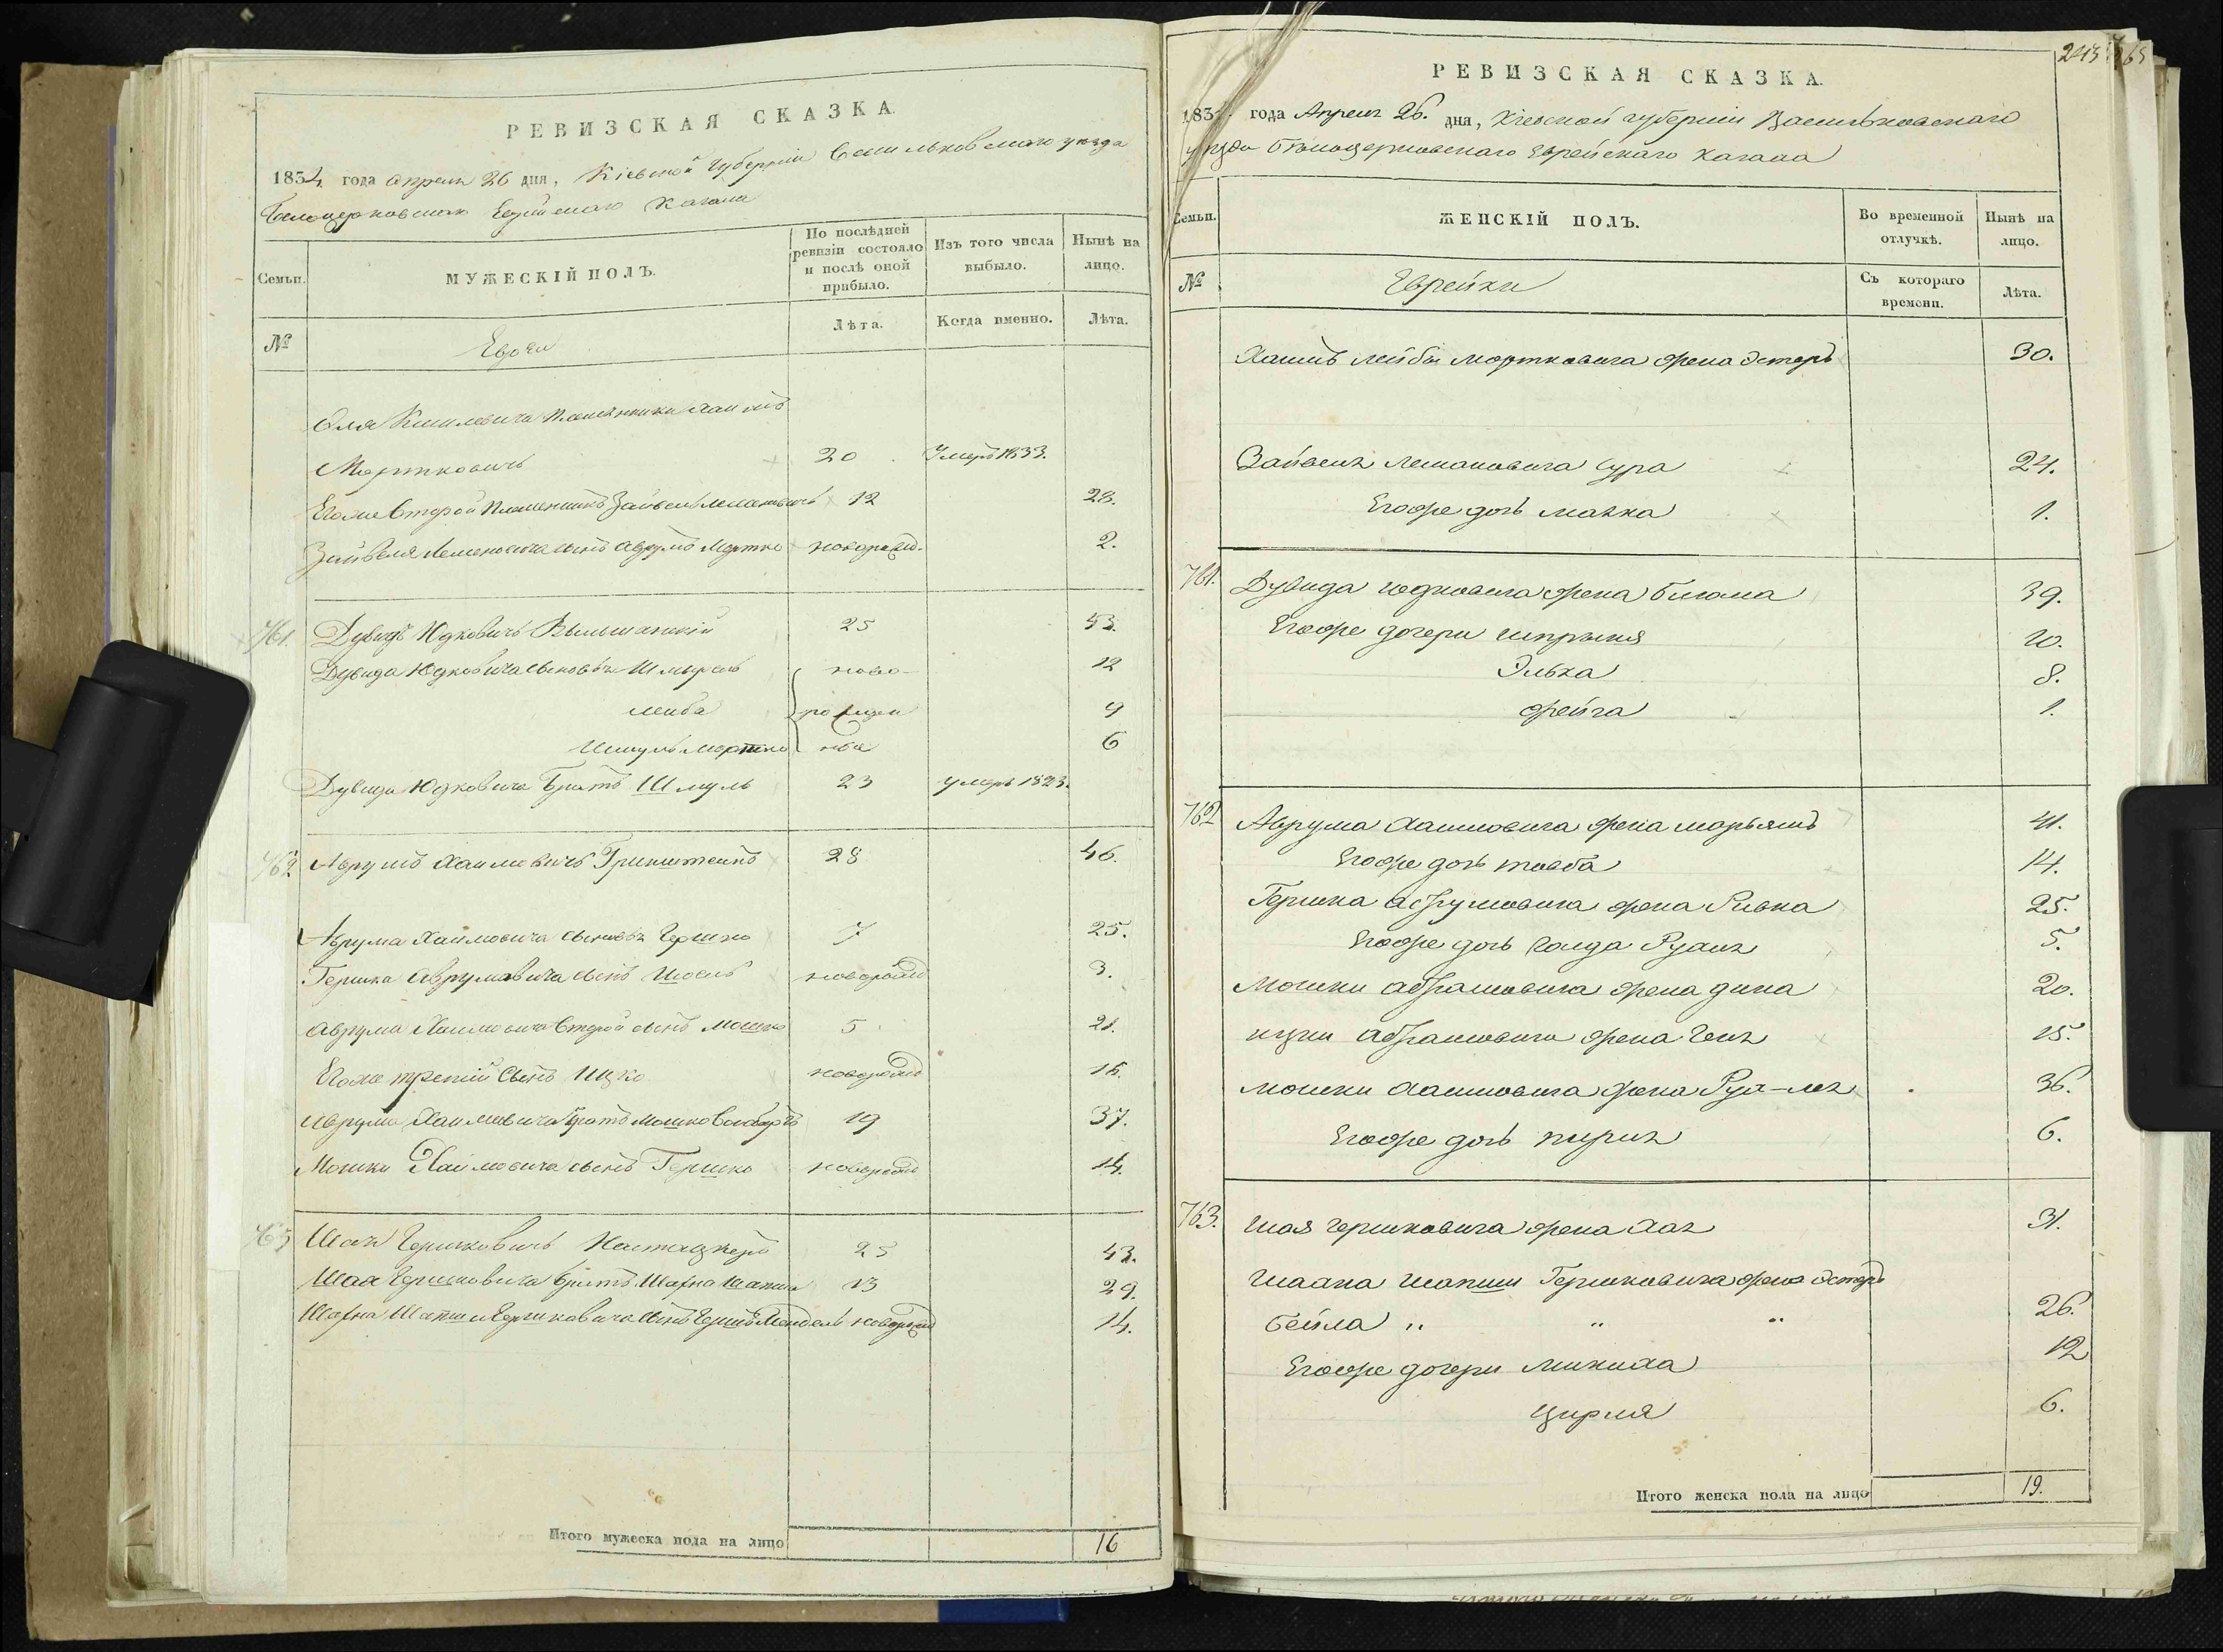 РЕВИЗСКАЯ СКАЗКА
1834 года апреля 26 дня, Кіевской Губерніи Васильковскаго уезда
Белоцерковскаго Еврейскаго Кагала
Семьи.
МУЖЕСКІЙ ПОЛЪ.
По послѣдней ревизіи состояло и послѣ оной прибыло.
Изъ того числа выбыло.
Нынѣ на лицо.
№
Евреи
Лѣта.
Когда именно.
Лѣта.
Племянники Хаимъ
Мортковичъ 20 Умеръ 1833.
Егоже Второй Племенникъ Зайвель 12 28.
Зайвеля сынъ Аврумъ Мортко новорожд. 2.
761. Дувидъ Юдковичъ 25 43.
Дувида Юдковича сыновья Шмырель ново- 12
Лейба рожден 9
Шмуль Мортко ные 6
Дувида Юдковича Братъ Шмуль 23 умеръ 1823.
762 Аврумъ Хаимовичъ Гринштейнъ 28 46.
Аврума Хаимовича сыновья Гершко 7 25.
Гершка Аврумовича сынъ Иосель новорожд 3.
Аврума Хаимовича Второй сынъ Мошко 5 21.
Егоже третій Сынъ Ицко новорожд 16.
Аврума Хаимовича братъ Мошко 19 37.
Мошки Хаимовича сынъ Гершко новорожд 14.
763 Шая Гершковичъ 25 43.
Шая Гершковича братъ Шахна Шапша 13 29.
Шахна Шапши Гершковича сынъ Гершъ Мендель новорожд 14.
Итого мужеска пола на лицо 16
243 763
РЕВИЗСКАЯ СКАЗКА.
1834 года Апреля 26. дня, Кіевской губерніи Васильковскаго
уезда Белоцерковскаго Еврейскаго Кагала
Семьи.
ЖЕНСКІЙ ПОЛЪ.
Во временной отлучкѣ.
Нынѣ на лицо.
№
Еврейки
Съ котораго времени.
Лѣта.
Хаимъ Лейбы Мортковича жена Эстеръ 30.
Зайвеля Сура 24.
Егоже дочь Малка 1.
761. Дувида Юдковича жена 39.
Егоже дочери Шпрыня 10.
Элька 8.
Фейга 1.
762 Аврума Хаимовича жена Марьямъ 41.
Егоже дочь Товба 14.
Гершка Аврумовича жена Ривка 25.
Егоже дочь Голда Рухля 5.
Мошки Абрамовича жена Дина 20.
Ицки Абрамовича жена Геня 15.
Мошки Хаимовича жена Рух-ля 36.
Егоже дочь Пирля 6.
763. Шая Гершковича жена Хая 31.
Шахна Шапши Гершковича жена Эстеръ
Бейла „ „ „ 26.
Егоже дочери Миниха 12
Цирля 6.
Итого женска пола на лицо 19.